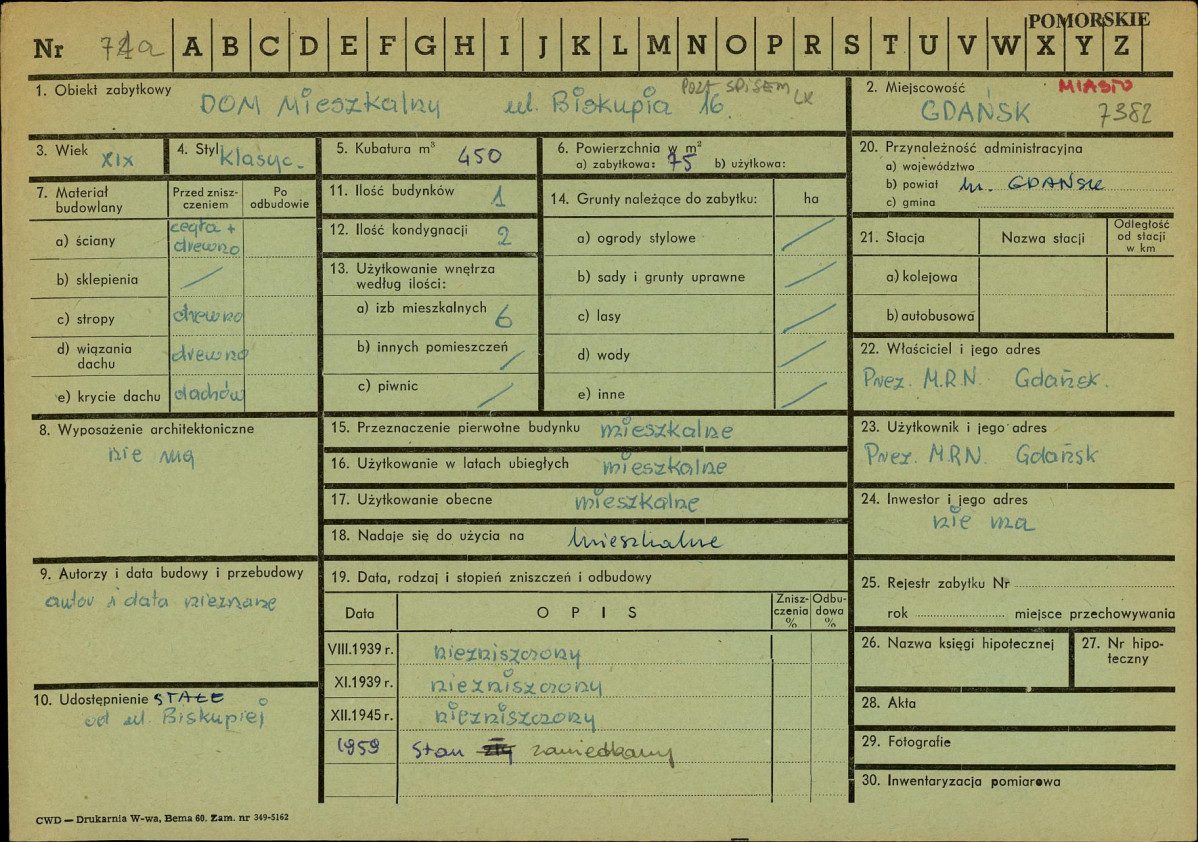 POMORSKIE
Nr 72a A B C D E F G H I J K L M N O P R S T U V W X Y Z
1. Obiekt zabytkowy
DOM MIESZKALNY ul. Biskupia 16.
POZA SPISEM
2. Miejscowość
MIASTO
GDAŃSK 7382
3. Wiek XIX
4. Styl klasyc.
5. Kubatura m³ 450
6. Powierzchnia w m²
a) zabytkowa: 75 b) użytkowa:
7. Materiał budowlany
Przed zniszczeniem
Po odbudowie
a) ściany cegła + drewno
b) sklepienia
c) stropy drewno
d) wiązania dachu drewno
e) krycie dachu dachów
8. Wyposażenie architektoniczne
nie ma
9. Autorzy i data budowy i przebudowy
autor i data nieznane
10. Udostępnienie STAŁE
od ul. Biskupiej
11. Ilość budynków 1
12. Ilość kondygnacji 2
13. Użytkowanie wnętrza
według ilości:
a) izb mieszkalnych 6
b) innych pomieszczeń
c) piwnic
14. Grunty należące do zabytku: ha
a) ogrody stylowe
b) sady i grunty uprawne
c) lasy
d) wody
e) inne
15. Przeznaczenie pierwotne budynku mieszkalne
16. Użytkowanie w latach ubiegłych mieszkalne
17. Użytkowanie obecne mieszkalne
18. Nadaje się do użycia na mieszkalne
19. Data, rodzaj i stopień zniszczeń i odbudowy
Data OPIS Zniszczenia % Odbudowa %
VIII.1939 r. niezniszczony
XI.1939 r. niezniszczony
XII.1945 r. niezniszczony
1959 Stan zły zaniedbany
20. Przynależność administracyjna
a) województwo
b) powiat m. GDAŃSK
c) gmina
21. Stacja Nazwa stacji Odległość od stacji w km
a) kolejowa
b) autobusowa
22. Właściciel i jego adres
Prez. M.R.N. Gdańsk.
23. Użytkownik i jego adres
Prez. M.R.N. Gdańsk
24. Inwestor i jego adres
nie ma
25. Rejestr zabytku Nr
rok miejsce przechowywania
26. Nazwa księgi hipotecznej
27. Nr hipoteczny
28. Akta
29. Fotografie
30. Inwentaryzacja pomiarowa
CWD — Drukarnia W-wa, Bema 60. Zam. nr 349-5162